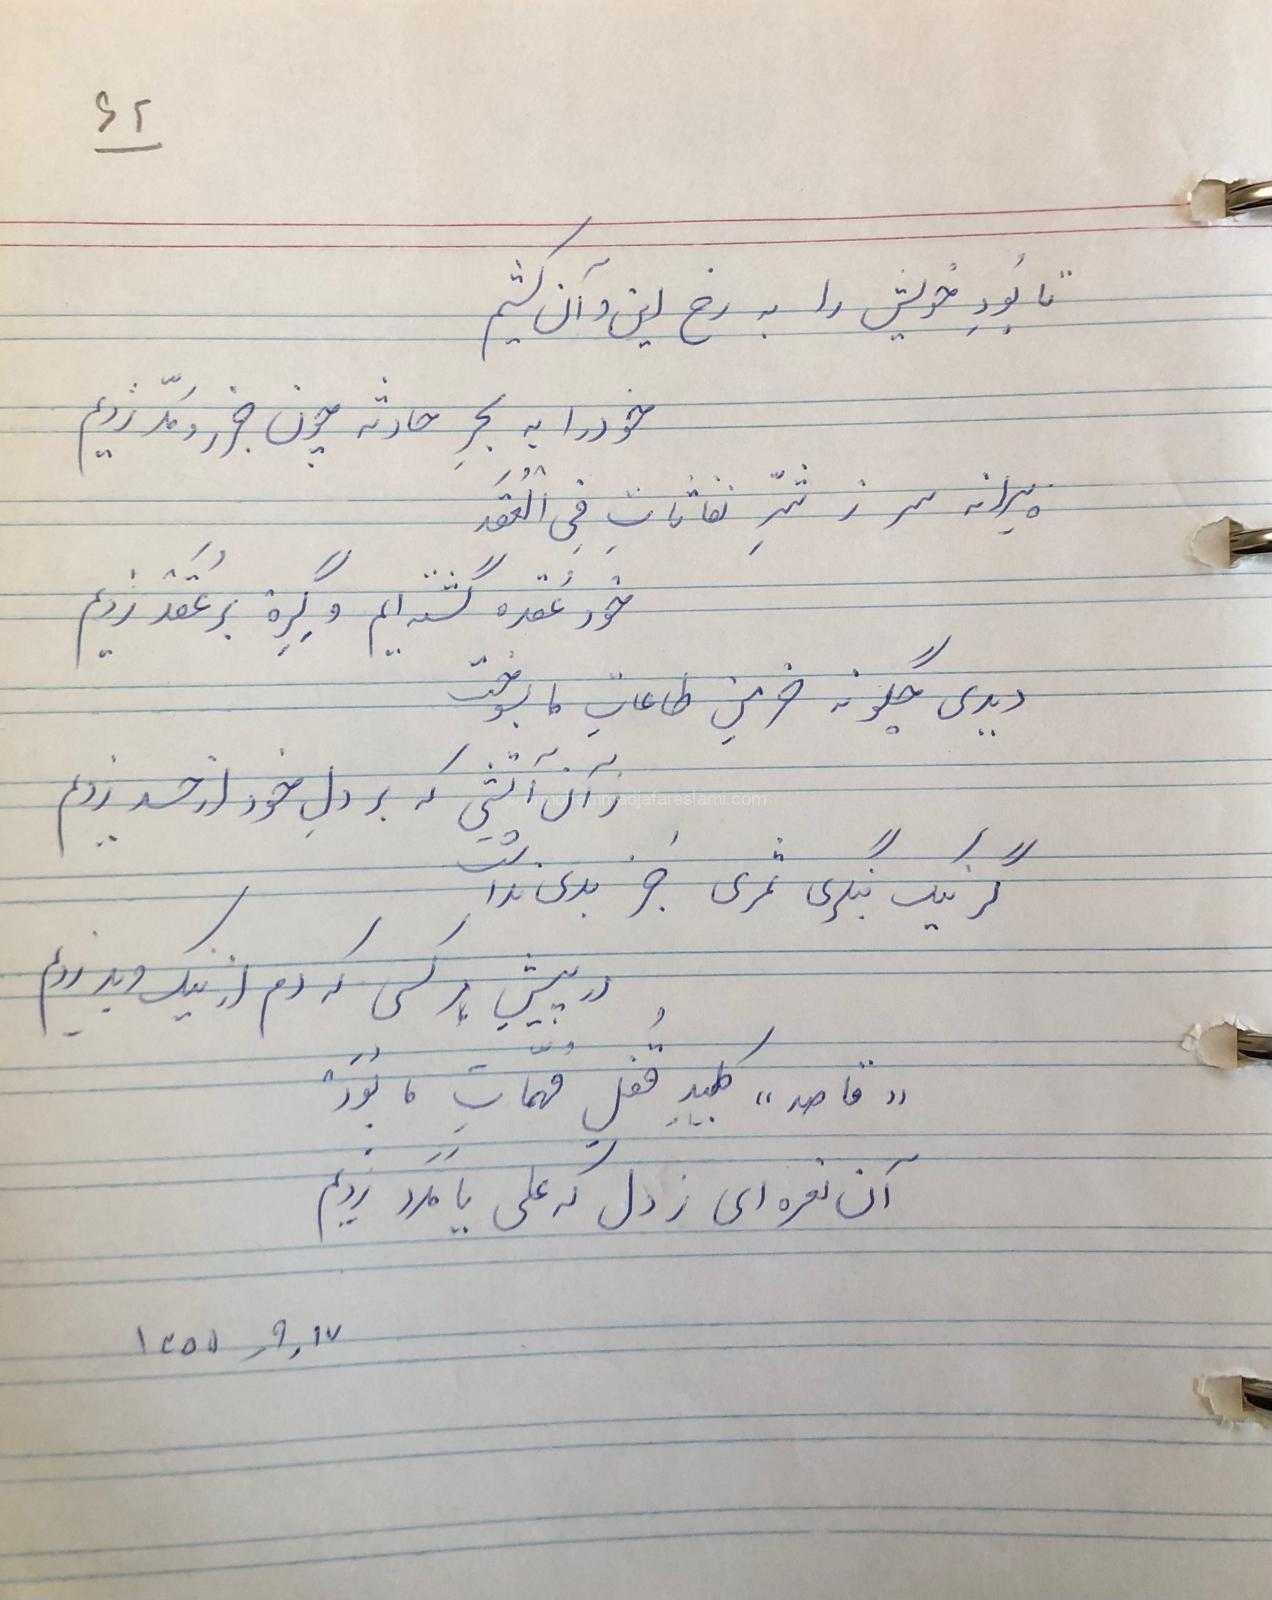 ۶۲
تا بُودِ خویش را به رخ این و آن کشیم
خود را به بحرِ حادثه چون جزر و مدّ زدیم
پیرانه سر ز شرِّ نفاثاتِ فِی الْعُقَد
خود عُقده گشته ایم و گِرِه بر عُقَد زدیم
دیدی چگونه خرمنِ طاعاتِ ما بسوخت
ز آن آتشی که بر دلِ خود از حسد زدیم
گر نیک بنگری ثمری جُز بدی نداشت
در پیشِ هر کسی که دم از نیک و بد زدیم
«قاصد» کلیدِ قُفلِ مُهمّاتِ ما بُوَد
آن نعره ای ز دل که علی یا مَدَد زدیم
۱۳۵۵ ر ۹ ر ۱۷
mohammadjafareslami.com